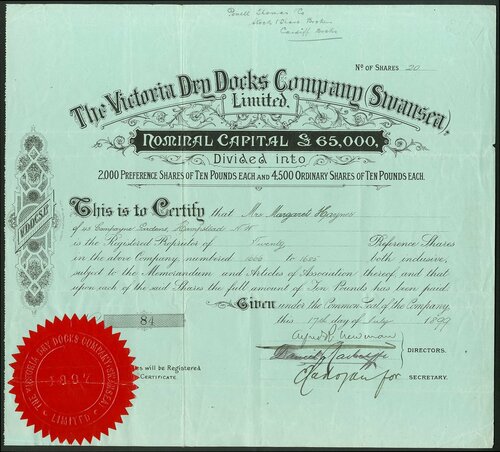 Powell Thomas & Co
Stock & Share Brokers
Cardiff
No OF SHARES 20
The Victoria Dry Docks Company (Swansea),
Limited.
NOMINAL CAPITAL £65,000,
Divided into
2,000 PREFERENCE SHARES OF TEN POUNDS EACH AND 4,500 ORDINARY SHARES OF TEN POUNDS EACH.
This is to Certify that Mrs Margaret Haynes
of 50 Compayne Gardens Hampstead N.W
is the Registered Proprietor of Twenty Preference Shares
in the above Company numbered 1666 to 1685 both inclusive,
subject to the Memorandum and Articles of Association thereof, and that
upon each of the said Shares the full amount of Ten Pounds has been paid.
Given under the Common Seal of the Company,
this 17th day of July 1899
84
Alfred R. Newman
DIRECTORS.
SECRETARY.
will be Registered
Certificate.
THE VICTORIA DRY DOCKS COMPANY (SWANSEA)
LIMITED.
1897